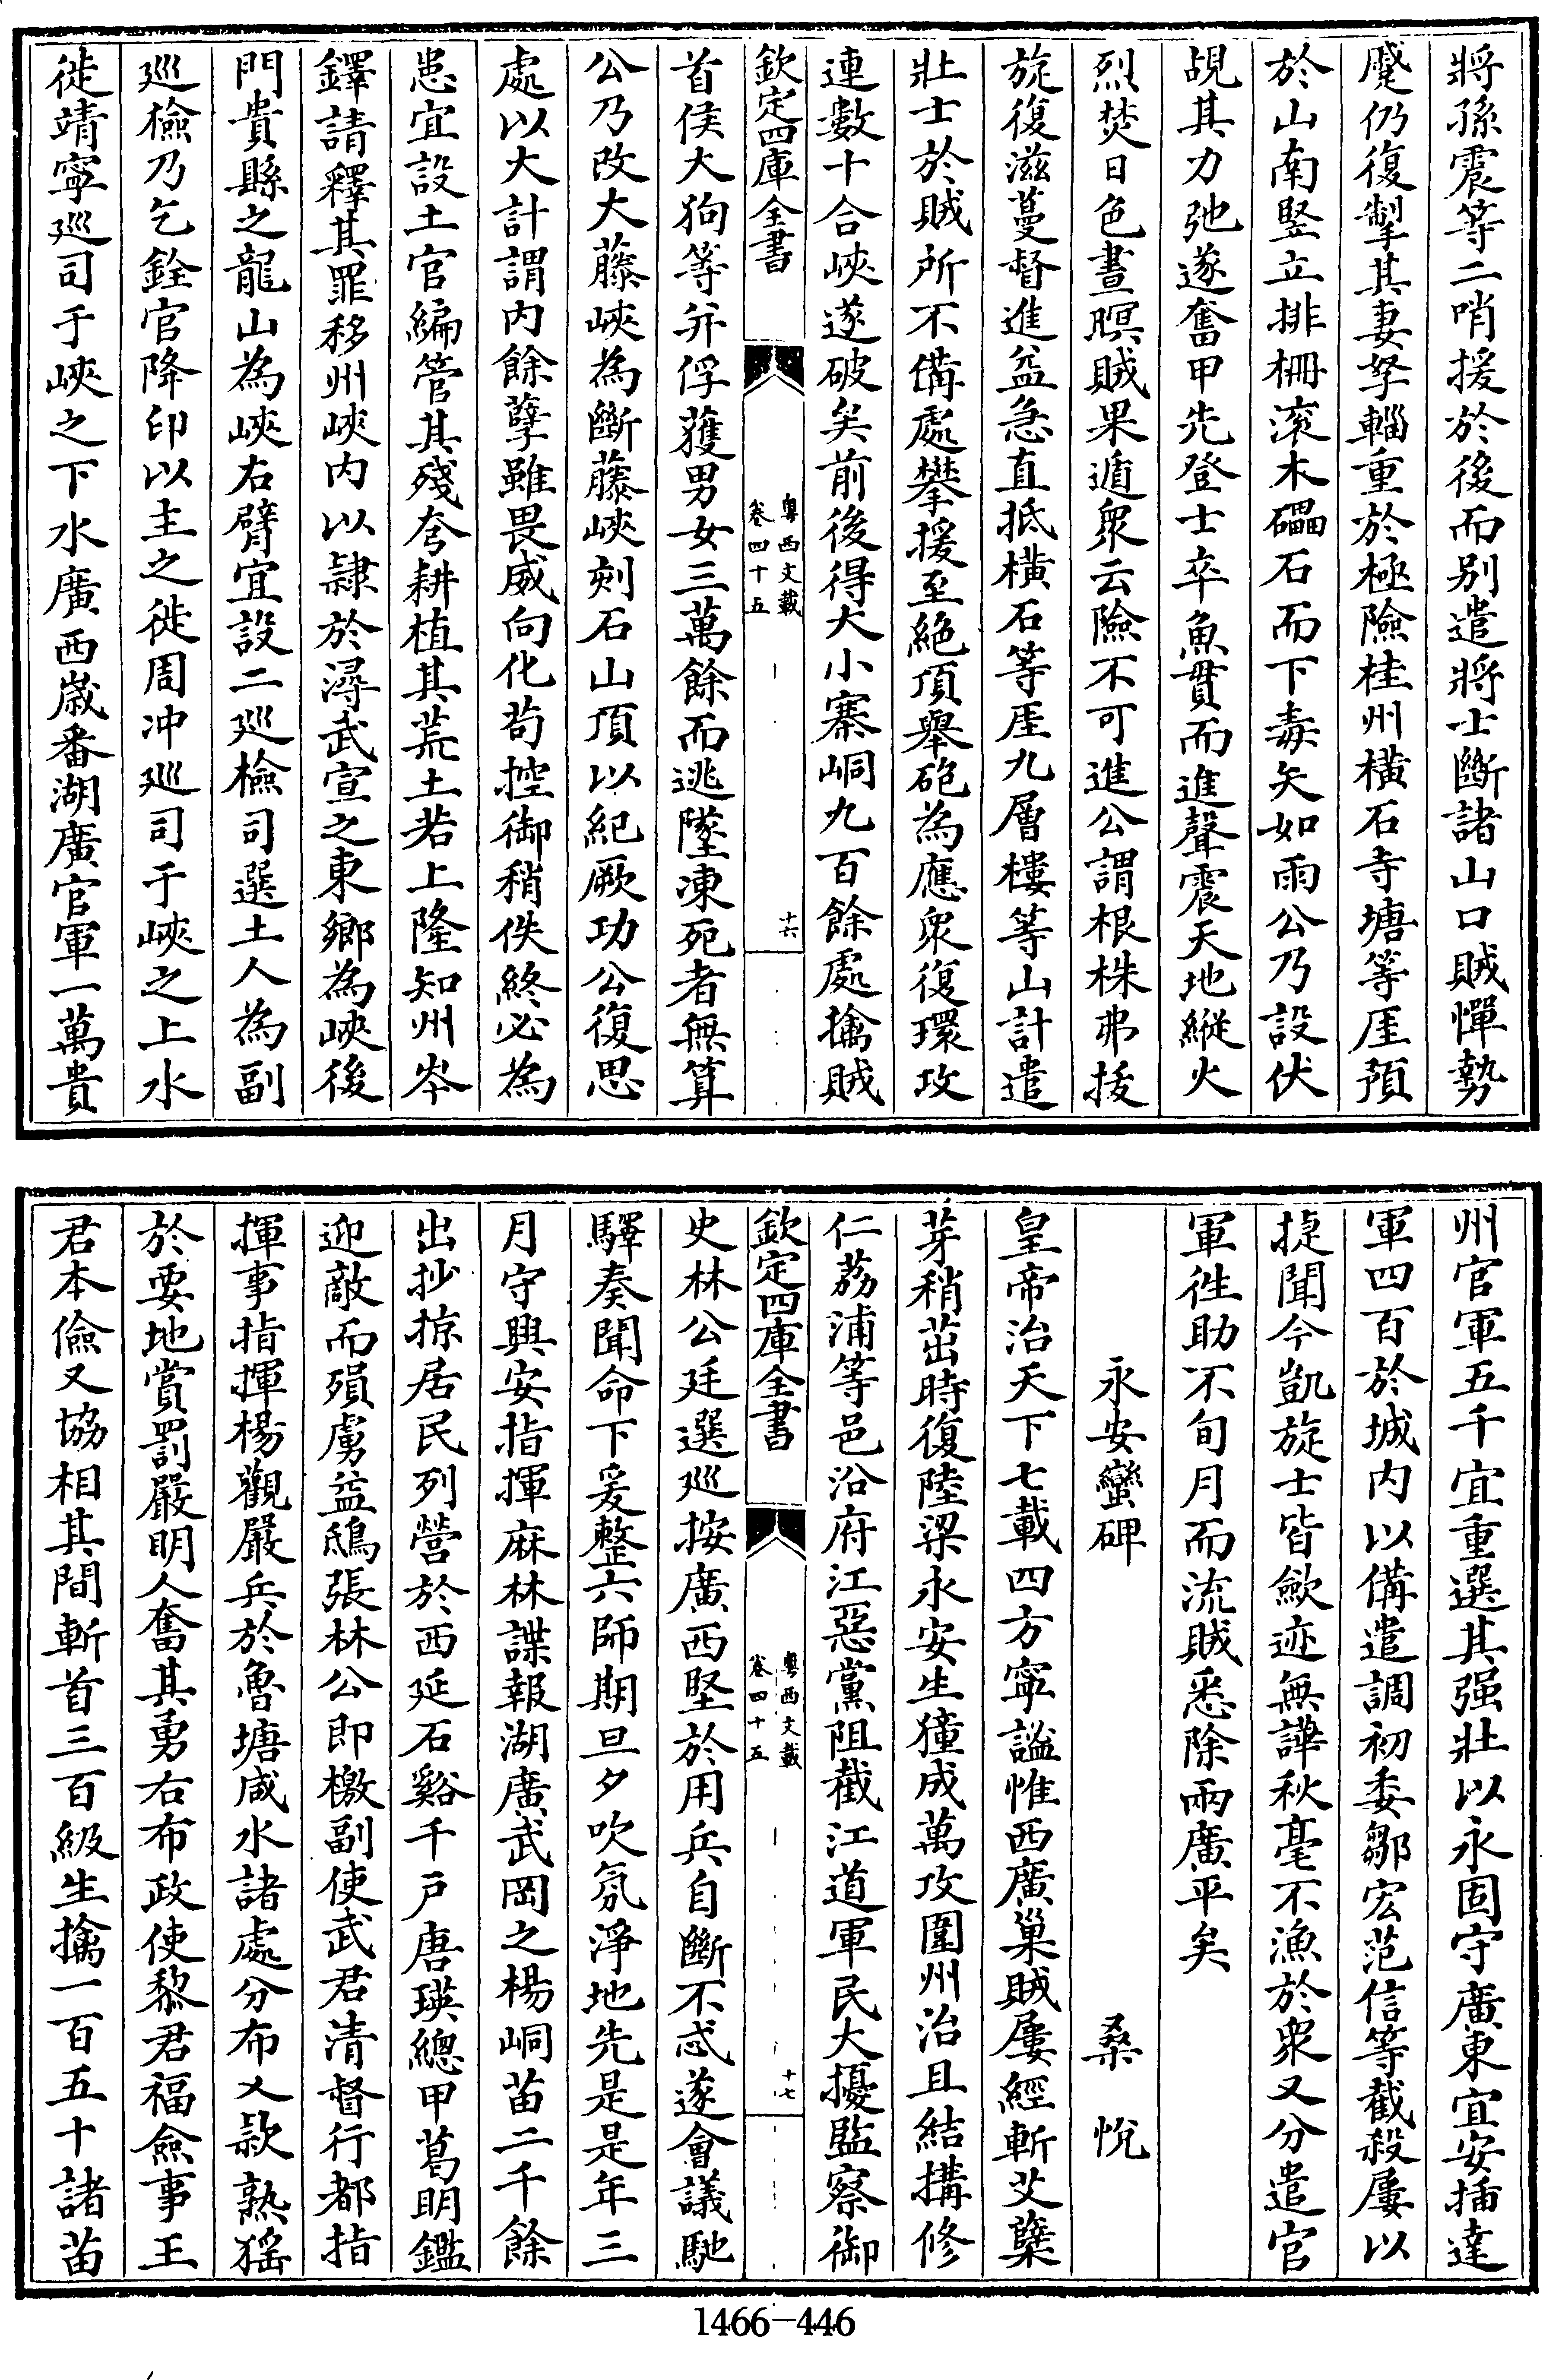 將孫震等二哨援於後而别遣將士斷諸山口賊憚勢
蹙仍復掣其妻孥輜重於極險桂州横石寺塘等厓預
於山南竪立排栅滚木礧石而下毒矢如雨公乃設伏
覘其力弛遂奮甲先登士卒魚貫而進聲震天地縱火
烈焚日色晝暝賊果遁衆云險不可進公謂根株弗拔
旋復滋蔓督進益急直抵横石等厓九層樓等山計遣
壯士於賊所不備處攀援至絶頂舉砲為應衆復環攻
連數十合峽遂破矣前後得大小寨峒九百餘處擒賊
欽定四庫全書
粤西文載
卷四十五
十六
首侯大狗等并俘獲男女三萬餘而逃墜凍死者無算
公乃改大藤峽為斷藤峽刻石山頂以紀厥功公復思
處以大計謂内餘孽雖畏威向化茍控御稍佚終必為
患宜設土官編管其殘夸耕植其荒土若上隆知州岑
鐸請釋其罪移州峽内以隷於潯武宣之東鄉為峽後
門貴縣之龍山為峽右臂宜設二廵檢司選土人為副
廵檢乃乞銓官降印以主之徙周冲廵司于峽之上水
徙靖寧廵司于峽之下水廣西歳番湖廣官軍一萬貴
州官軍五千宜重選其强壯以永固守廣東宜安插達
軍四百於城内以備遣調初委鄒宏范信等截殺屢以
捷聞今凱旋士皆歛迹無譁秋毫不漁於衆又分遣官
軍徃助不旬月而流賊悉除兩廣平矣
永安蠻碑
桑悦
皇帝治天下七載四方寧謐惟西廣巢賊屢經斬艾蘖
芽稍茁時復陸梁永安生獞成萬攻圍州治且結搆修
仁荔浦等邑沿府江惡黨阻截江道軍民大擾監察御
欽定四庫全書
粤西文載
卷四十五
十七
史林公廷選廵按廣西堅於用兵自斷不惑遂會議馳
驛奏聞命下爰整六師期旦夕吹氛淨地先是是年三
月守興安指揮麻林諜報湖廣武岡之楊峒苗二千餘
出抄掠居民列營於西延石谿千戸唐瑛總甲葛明鑑
迎敵而殞虜益鴟張林公即檄副使武君清督行都指
揮事指揮楊觀嚴兵於魯塘咸水諸處分布乂款熟猺
於要地賞罰嚴明人奮其勇右布政使黎君福僉事王
君本儉又協相其間斬首三百級生擒一百五十諸苗
1466-446